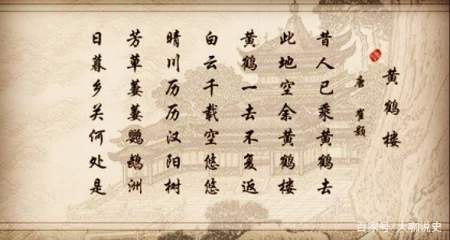 黄鹤楼
唐 崔颢
昔人已乘黄鹤去
此地空余黄鹤楼
黄鹤一去不复返
白云千载空悠悠
晴川历历汉阳树
芳草萋萋鹦鹉洲
日暮乡关何处是
百家号/大聊说史